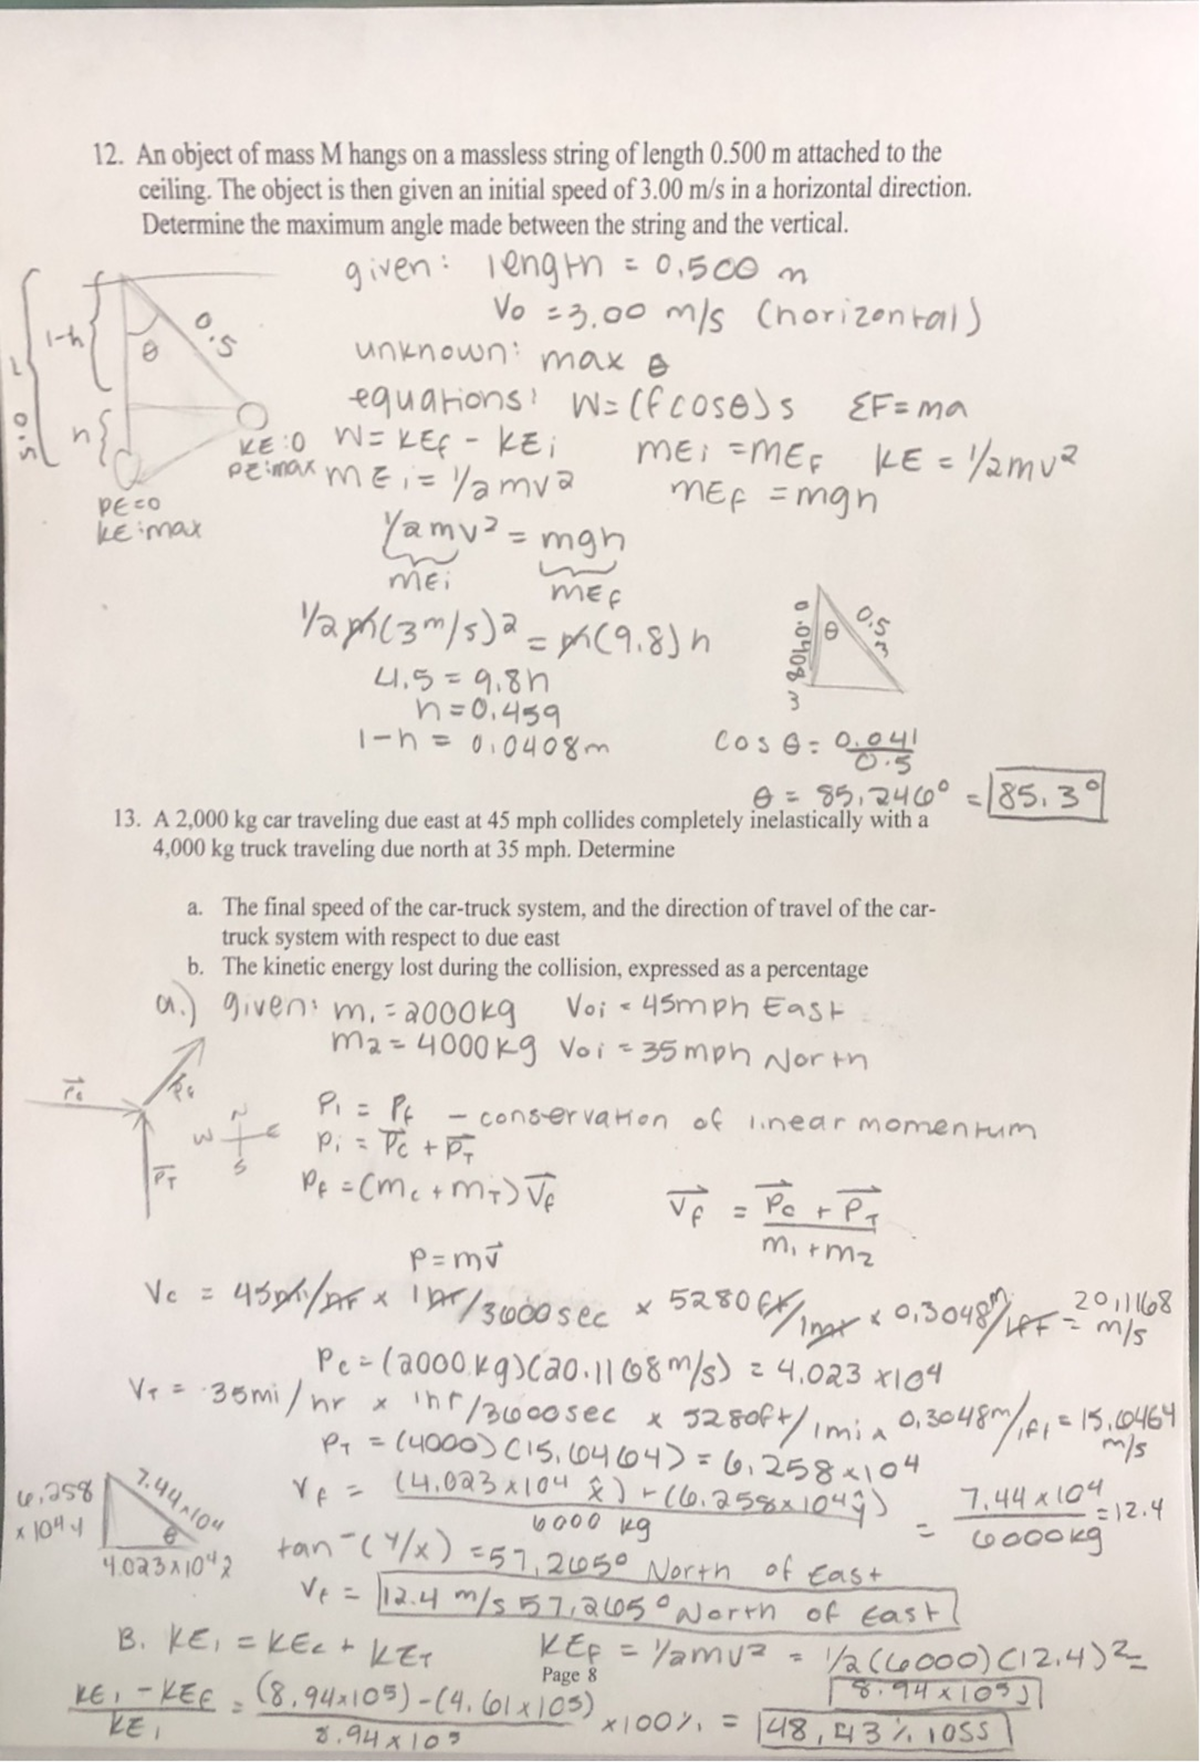 12. An object of mass M hangs on a massless string of length 0.500 m attached to the
ceiling. The object is then given an initial speed of 3.00 m/s in a horizontal direction.
Determine the maximum angle made between the string and the vertical.
given: length = 0.500 m
V0 = 3.00 m/s (horizontal)
unknown: max θ
equations: W=(fcosθ)s ΣF=ma
W=KEf - KEi MEi = MEf KE = 1/2mv²
MEi = 1/2mv² MEf = mgh
l-h θ 0.5
l 0.5 h
KE:0
PE:max
PE=0
KE:max
1/2mv² = mgh
MEi MEf
1/2m(3m/s)² = m(9.8)h
4.5 = 9.8h
h=0.459
l-h = 0.0408m
0.0408 m θ 0.5 m
cosθ = 0.041/0.5
θ = 85.246° = 85.3°
13. A 2,000 kg car traveling due east at 45 mph collides completely inelastically with a
4,000 kg truck traveling due north at 35 mph. Determine
a. The final speed of the car-truck system, and the direction of travel of the car-
truck system with respect to due east
b. The kinetic energy lost during the collision, expressed as a percentage
a.) given: m1 = 2000kg Voi = 45mph East
m2 = 4000kg Voi = 35mph North
N
W E
S
PT
Pi = Pf - conservation of linear momentum
Pi = Pc + PT
Pf = (mc + mT)Vf
Vf = Pc + PT / m1 + m2
P=mv
Vc = 45mi/hr x 1hr/3600sec x 5280ft/1mi x 0.3048m/1ft = 20.1168 m/s
Pc = (2000kg)(20.1168m/s) = 4.023 x10⁴
VT = 35mi/hr x 1hr/3600sec x 5280ft/1mi x 0.3048m/1ft = 15.6464 m/s
PT = (4000)(15.6464) = 6.258x10⁴
Vf = (4.023x10⁴ x̂) + (6.258x10⁴ŷ) / 6000 kg = 7.44x10⁴ / 6000kg = 12.4
6.258 x10⁴ ŷ 7.44x10⁴ θ
4.023x10⁴ x̂
tan⁻(y/x) = 57.265° North of East
Vf = 12.4 m/s 57.265° North of East
B. KEi = KEc + KET KEf = 1/2mv² = 1/2(6000)(12.4)² =
8.94x10⁵J
Page 8
KEi - KEf / KEi = (8.94x10⁵)-(4.61x10⁵) / 8.94x10⁵ x100% = 48.43% loss